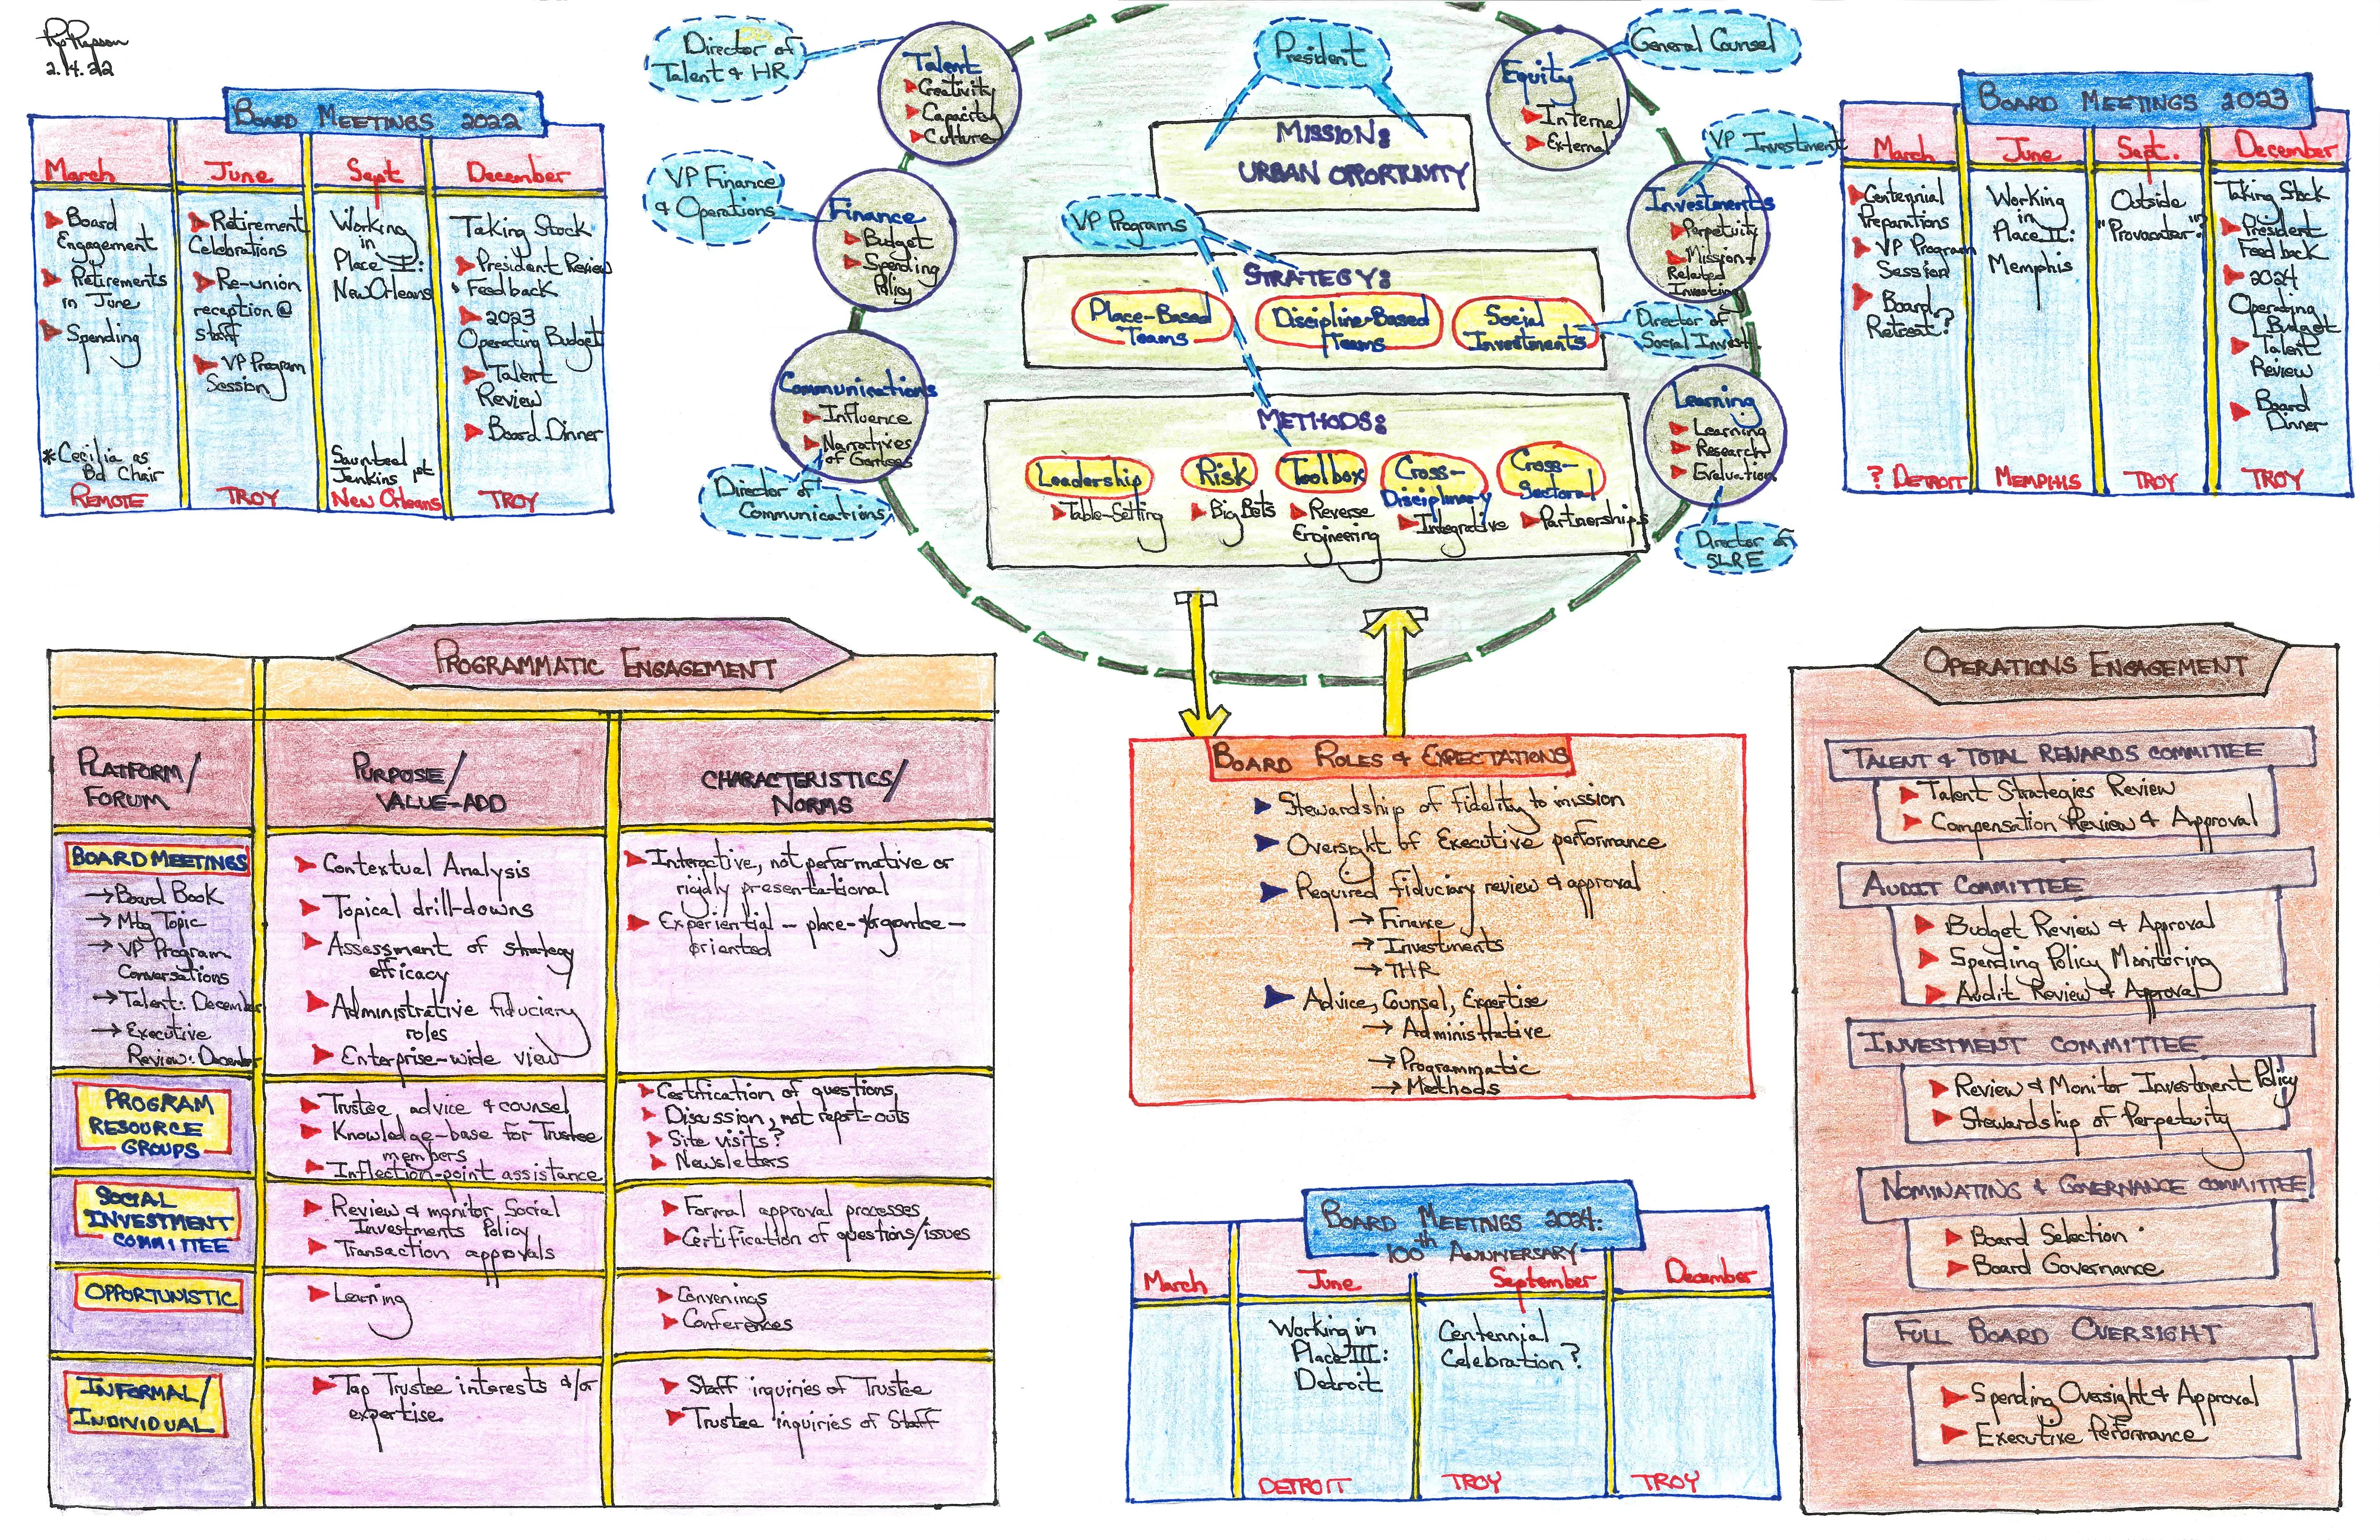 2.14.22
BOARD MEETINGS 2022
March
Board
Engagement
Retirements
in June
Spending
*Cecilia as
Bd Chair
REMOTE
June
Retirement
Celebrations
Re-union
reception @
staff
VP Program
Session
TROY
Sept
Working
in
Place I:
New Orleans
Jenkins 1st
New Orleans
December
Taking Stock
President Review
Feedback
2023
Operating Budget
Talent
Review
Board Dinner
TROY
Director of
Talent & HR
Talent
Creativity
Capacity
Culture
VP Finance
& Operations
Finance
Budget
Spending
Policy
Communications
Influence
Narratives
of
Director of
Communications
President
MISSION:
URBAN OPPORTUNITY
VP Programs
STRATEGY:
Place-Based
Teams
Discipline-Based
Teams
Social
Investments
Director of
Social Invest.
METHODS:
Leadership
Table-Setting
Risk
Big Bets
Toolbox
Reverse
Engineering
Cross-
Disciplinary
Integrative
Cross-
Sectoral
Partnerships
General Counsel
Equity
Internal
External
VP Investment
Investments
Perpetuity
Mission-
Related
Investing
Learning
Learning
Research
Evaluation
Director of
SLRE
BOARD MEETINGS 2023
March
Centennial
Preparations
VP Program
Session
Board
Retreat?
? DETROIT
June
Working
in
Place II:
Memphis
MEMPHIS
Sept.
Outside
"Provocater"?
TROY
December
Taking Stock
President
Feedback
2024
Operating
Budget
Talent
Review
Board
Dinner
TROY
PROGRAMMATIC ENGAGEMENT
PLATFORM/
FORUM
PURPOSE/
VALUE-ADD
CHARACTERISTICS/
NORMS
BOARD MEETINGS
→Board Book
→Mtg Topic
→VP Program
Conversations
→Talent: December
→Executive
Review: December
Contextual Analysis
Topical drill-downs
Assessment of strategy
efficacy
Administrative fiduciary
roles
Enterprise-wide view
Interactive, not performative or
rigidly presentational
Experiential – place-&/or grantee-
oriented
PROGRAM
RESOURCE
GROUPS
Trustee advice & counsel
Knowledge-base for Trustee
members
Inflection-point assistance
Certification of questions
Discussion, not report-outs
Site visits?
Newsletters
SOCIAL
INVESTMENT
COMMITTEE
Review & monitor Social
Investments Policy
Transaction approvals
Formal approval processes
Certification of questions/issues
OPPORTUNISTIC
Learning
Convenings
Conferences
INFORMAL/
INDIVIDUAL
Tap Trustee interests &/or
expertise.
Staff inquiries of Trustee
Trustee inquiries of Staff
BOARD ROLES & EXPECTATIONS
Stewardship of fidelity to mission
Oversight of Executive performance
Required fiduciary review & approval
→Finance
→Investments
→THR
Advice, Counsel, Expertise
→Administrative
→Programmatic
→Methods
BOARD MEETINGS 2024:
100th ANNIVERSARY
March
June
Working in
Place III:
Detroit
DETROIT
September
Centennial
Celebration?
TROY
December
TROY
OPERATIONS ENGAGEMENT
TALENT & TOTAL REWARDS COMMITTEE
Talent Strategies Review
Compensation Review & Approval
AUDIT COMMITTEE
Budget Review & Approval
Spending Policy Monitoring
Audit Review & Approval
INVESTMENT COMMITTEE
Review & Monitor Investment Policy
Stewardship of Perpetuity
NOMINATING & GOVERNANCE COMMITTEE
Board Selection
Board Governance
FULL BOARD OVERSIGHT
Spending Oversight & Approval
Executive Performance